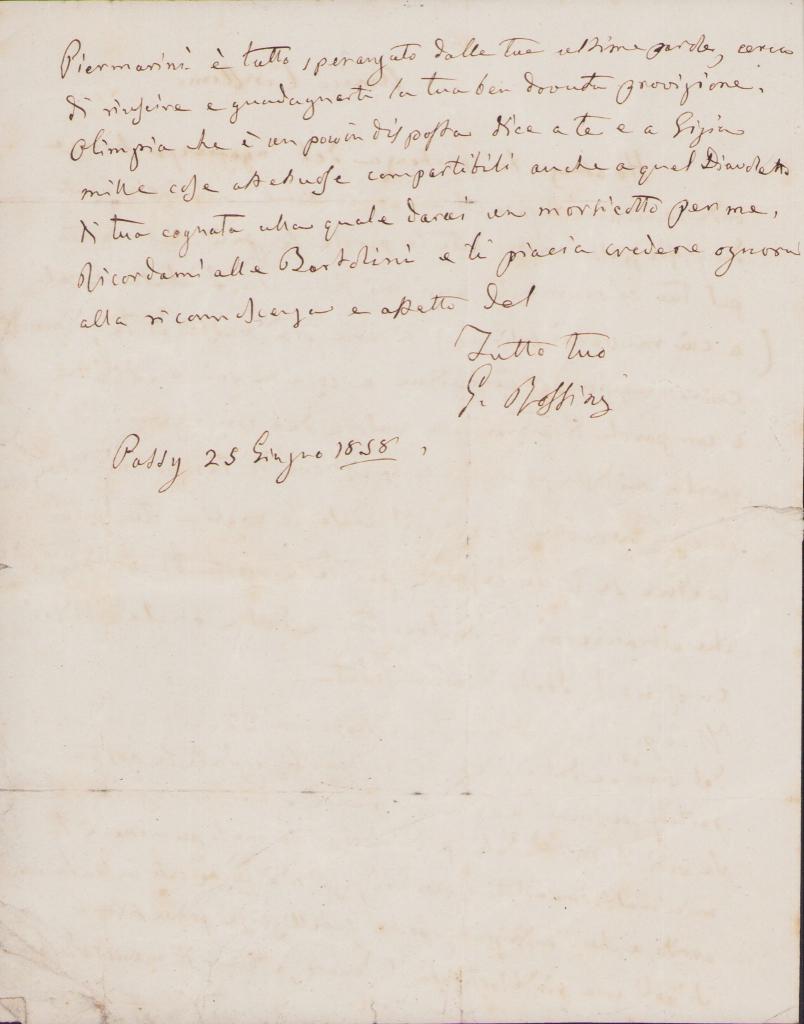 Piermarini è tutto speranzato dalle tue ultime parole, cerca
di riuscire e guadagnarti la tua ben dovuta provizione.
Olimpia che è un pò indisposta dice a te e a Gigia
mille cose affettuose compartibili anche a quel Diavoletto
di tua cognata alla quale darai un morsicotto per me.
Ricordami alle Bartolini e ti piacia credere ognora
alla riconnoscenza e affetto del
Tutto tuo
G. Rossini
Passy 25 Giugno 1858.